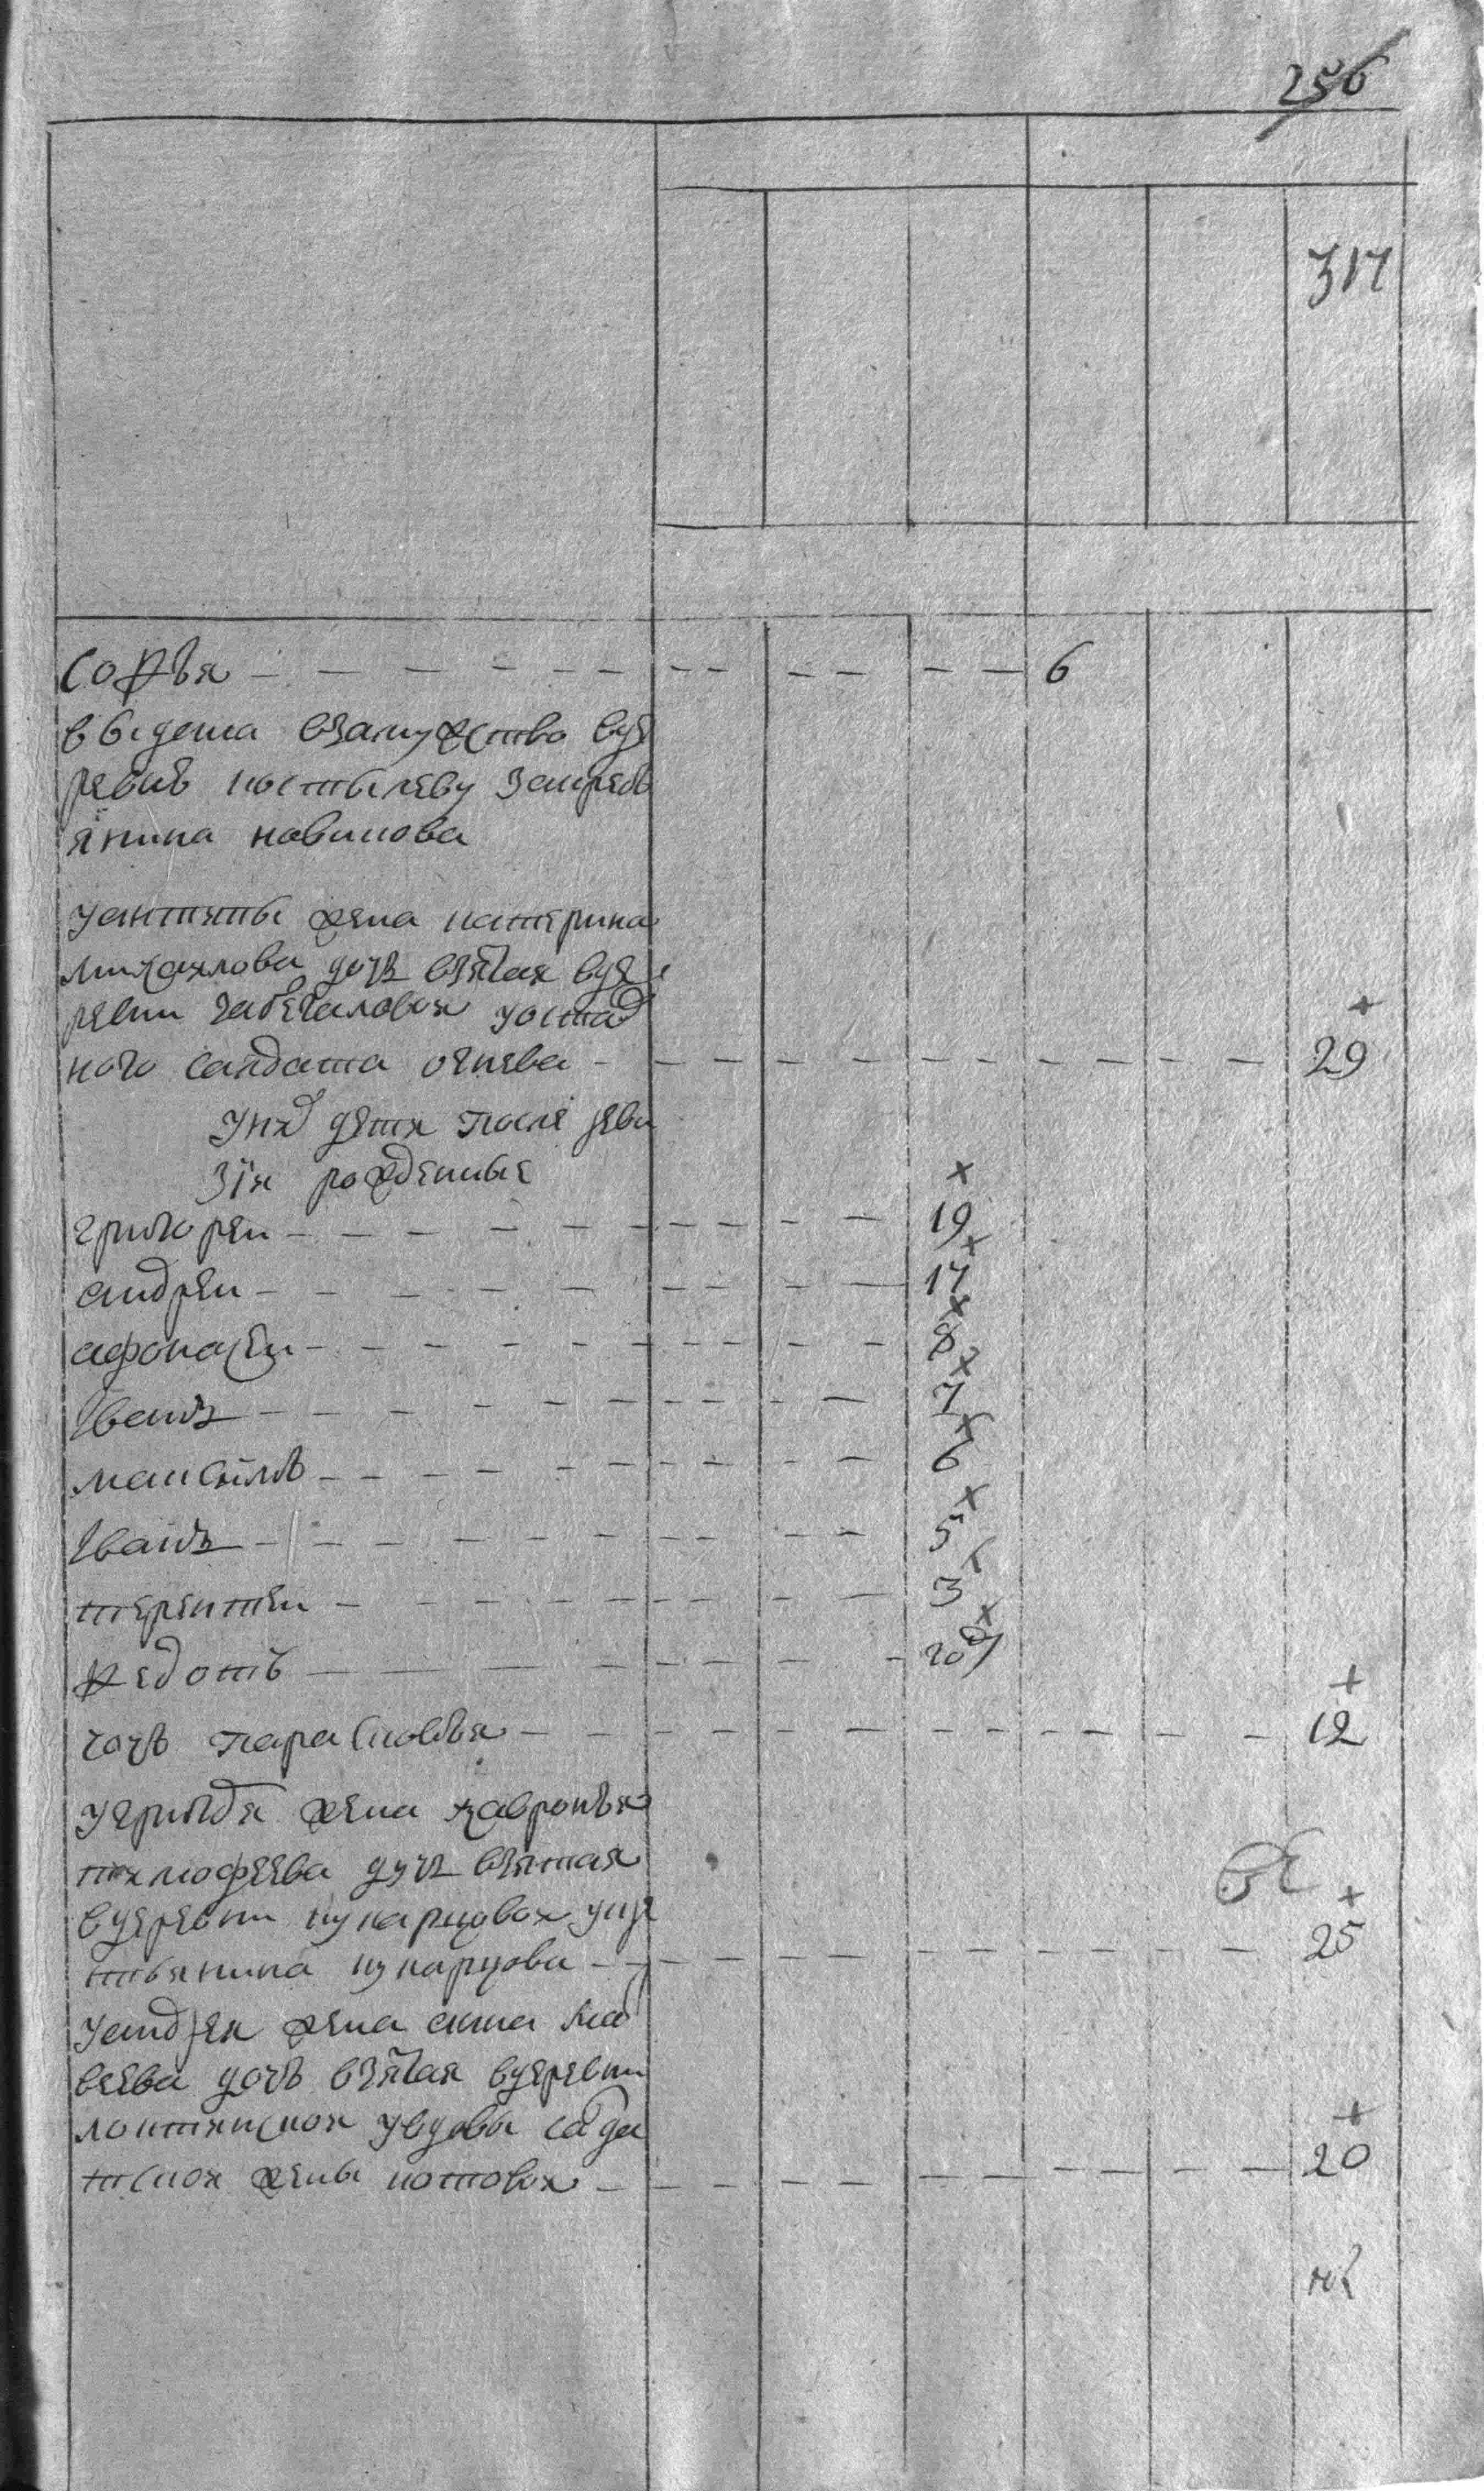 256
317
софья 6
выдана взамужство вде
ревнѣ костылеву закресть
янина новикова
уантипы жена катерина
михаилова дочь взятая вде
ревни чабечаловой уостад
ного салдата огнева 29
униx дети после реви
зїи рожденные
григореи 19
андреи 17
афонасеи 8
Іванъ 7
максимъ 6
Іванъ 5
терентеи 3
федотъ году
дочь парасковья 12
угригорья жена хавронья
тимофеева дочь взятая
вдеревни кукарцовои укре
стьянина кукарцова 25
уандрея жена анна мат
веева дочь взятая вдеревни
увдовы салда
тскои жены котовои 20